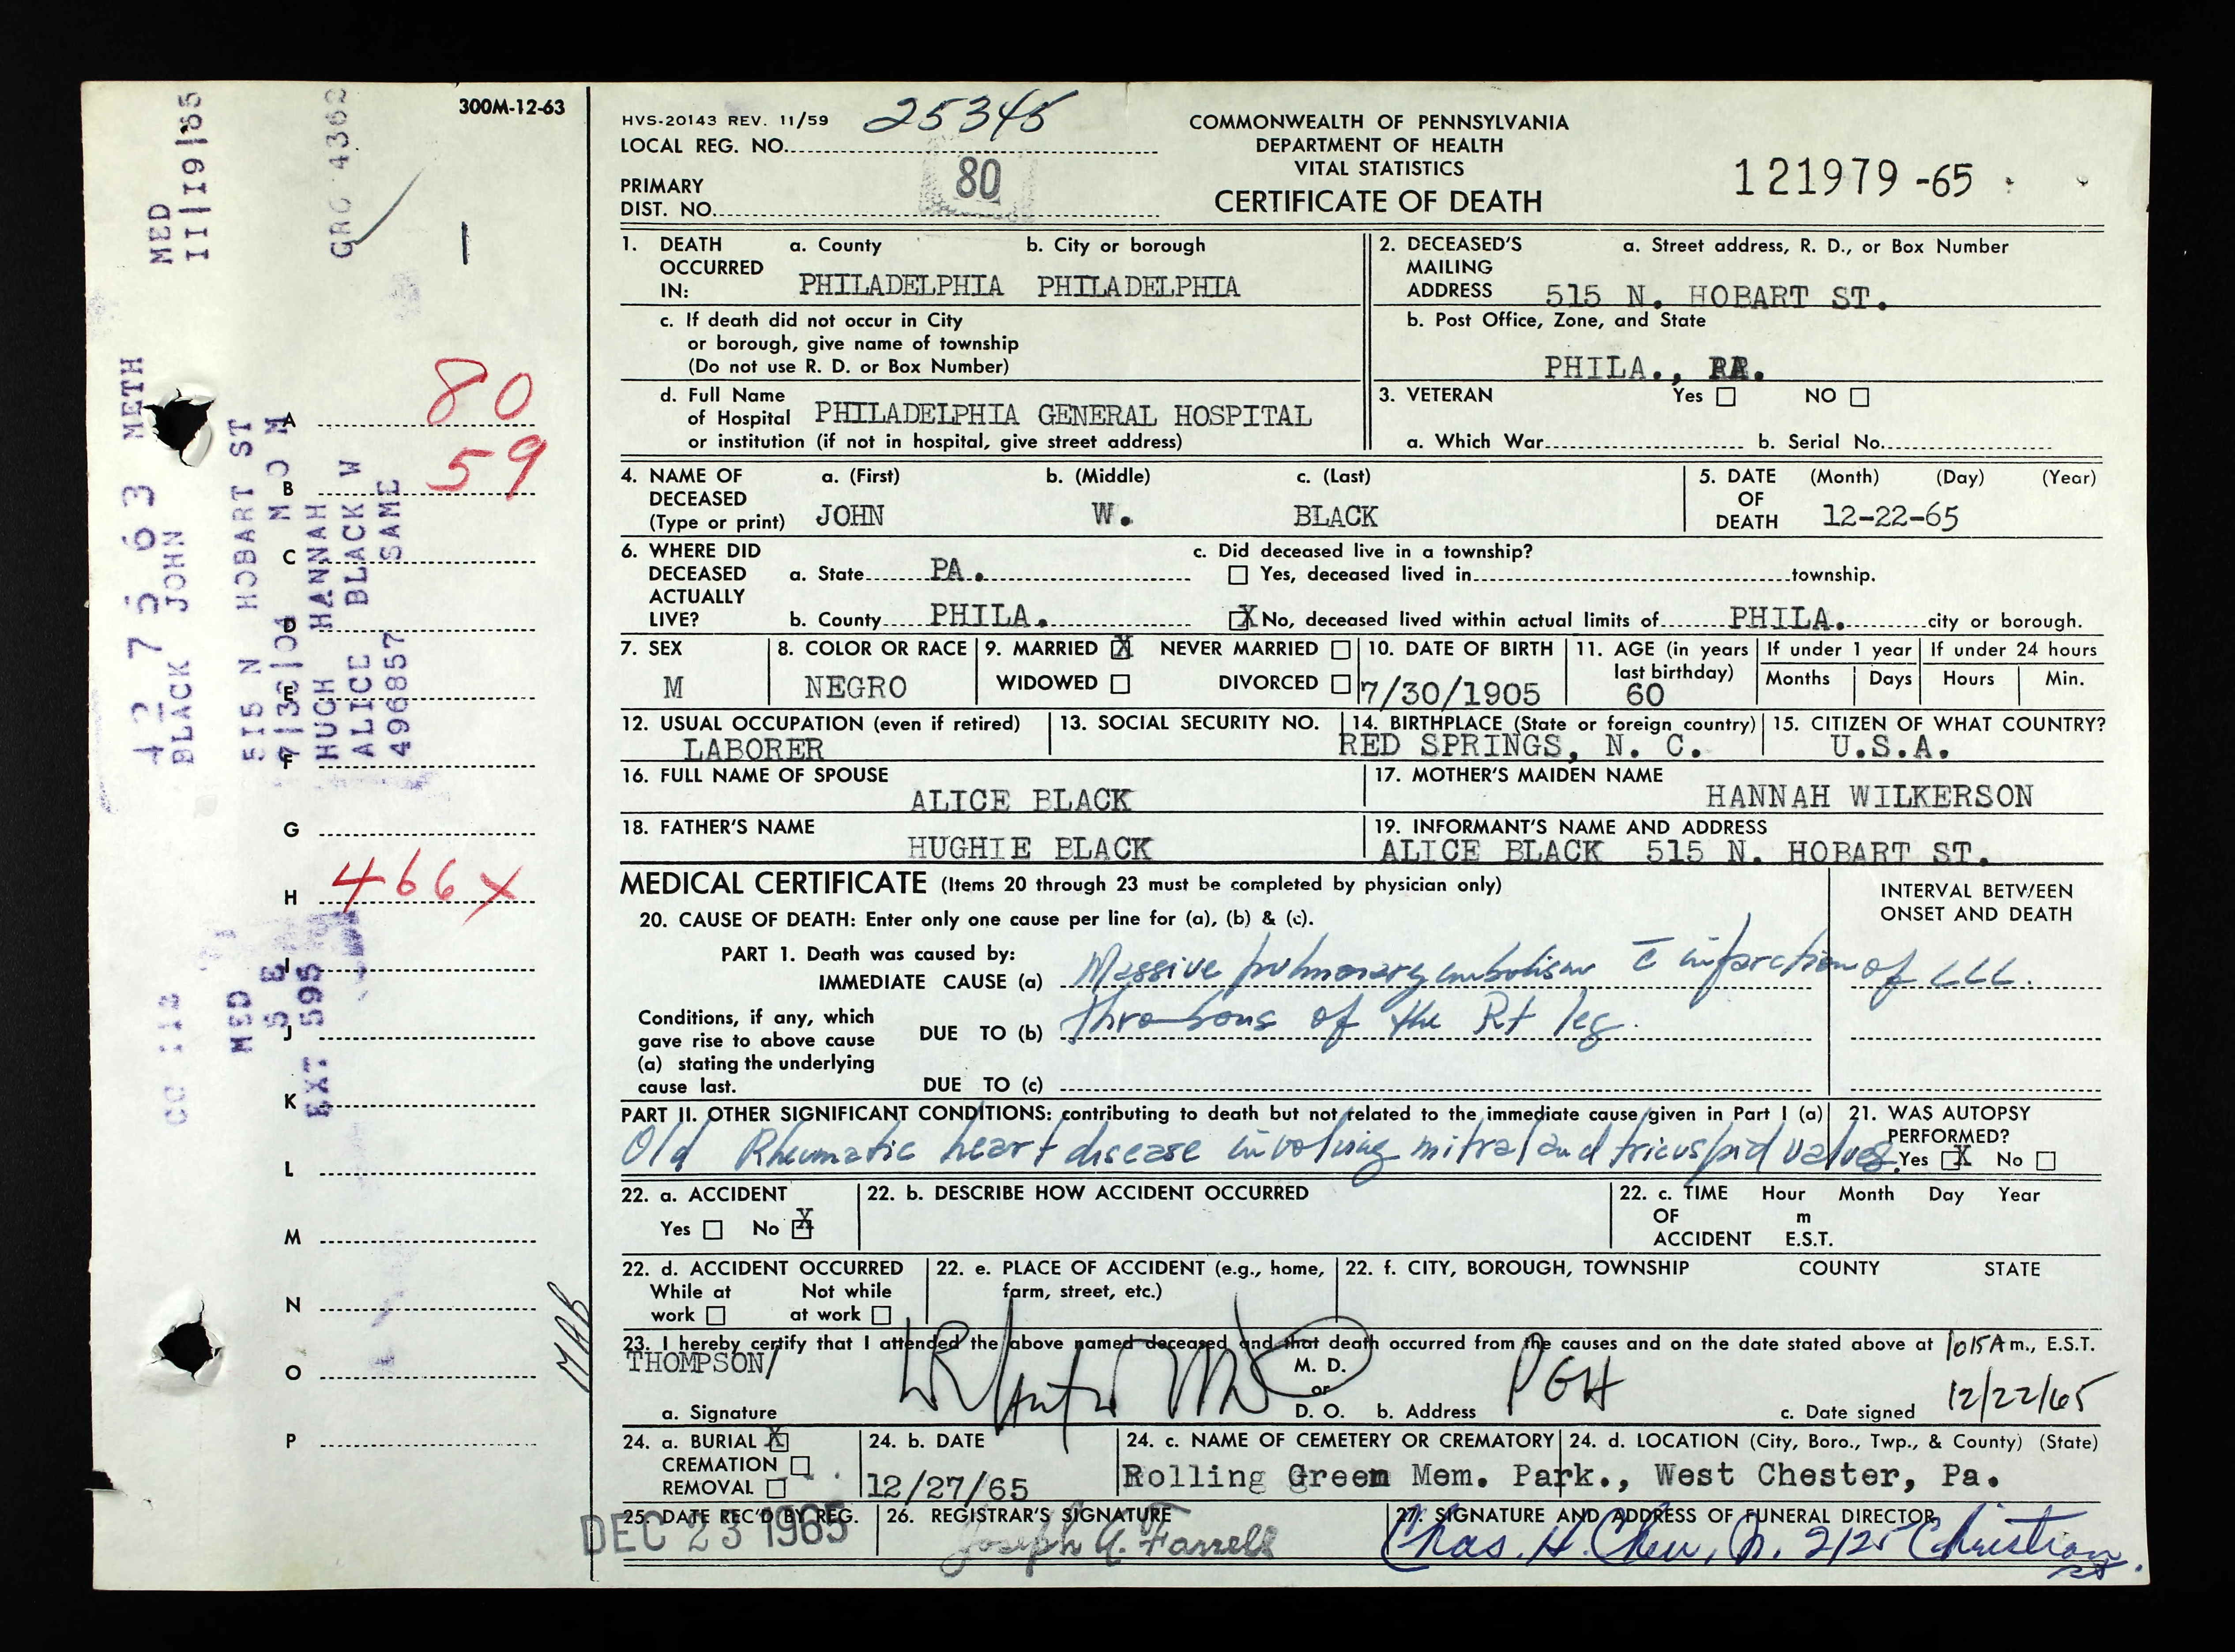 300M-12-63
HVS-20143 REV. 11/59
LOCAL REG. NO. 25345
PRIMARY DIST. NO. 80
COMMONWEALTH OF PENNSYLVANIA
DEPARTMENT OF HEALTH
VITAL STATISTICS
CERTIFICATE OF DEATH
121979-65
1. DEATH OCCURRED IN: a. County PHILADELPHIA b. City or borough PHILADELPHIA
c. If death did not occur in City
or borough, give name of township
(Do not use R. D. or Box Number)
d. Full Name
of Hospital PHILADELPHIA GENERAL HOSPITAL
or institution (if not in hospital, give street address)
2. DECEASED'S MAILING ADDRESS a. Street address, R. D., or Box Number
515 N. HOBART ST.
b. Post Office, Zone, and State
PHILA., PA.
3. VETERAN Yes NO
a. Which War b. Serial No.
4. NAME OF DECEASED (Type or print) a. (First) JOHN b. (Middle) W. c. (Last) BLACK
5. DATE OF DEATH (Month) (Day) (Year) 12-22-65
6. WHERE DID DECEASED ACTUALLY LIVE? a. State PA.
b. County PHILA.
c. Did deceased live in a township?
Yes, deceased lived in township.
X No, deceased lived within actual limits of PHILA. city or borough.
7. SEX M
8. COLOR OR RACE NEGRO
9. MARRIED X NEVER MARRIED
WIDOWED DIVORCED
10. DATE OF BIRTH 7/30/1905
11. AGE (in years last birthday) 60
If under 1 year Months Days
If under 24 hours Hours Min.
12. USUAL OCCUPATION (even if retired) LABORER
13. SOCIAL SECURITY NO.
14. BIRTHPLACE (State or foreign country) RED SPRINGS, N. C.
15. CITIZEN OF WHAT COUNTRY? U.S.A.
16. FULL NAME OF SPOUSE ALICE BLACK
17. MOTHER'S MAIDEN NAME HANNAH WILKERSON
18. FATHER'S NAME HUGHIE BLACK
19. INFORMANT'S NAME AND ADDRESS
ALICE BLACK 515 N. HOBART ST.
MEDICAL CERTIFICATE (Items 20 through 23 must be completed by physician only)
INTERVAL BETWEEN ONSET AND DEATH
20. CAUSE OF DEATH: Enter only one cause per line for (a), (b) & (c).
PART 1. Death was caused by:
IMMEDIATE CAUSE (a) Massive pulmonary embolism c̄ infarction of LLL.
Conditions, if any, which
gave rise to above cause
(a) stating the underlying
cause last.
DUE TO (b) of the Rt leg.
DUE TO (c)
PART II. OTHER SIGNIFICANT CONDITIONS: contributing to death but not related to the immediate cause given in Part I (a)
Old Rheumatic heart disease involving mitral and tricuspid valves.
21. WAS AUTOPSY PERFORMED?
Yes X No
22. a. ACCIDENT
Yes No X
22. b. DESCRIBE HOW ACCIDENT OCCURRED
22. c. TIME OF ACCIDENT Hour Month Day Year
m
E.S.T.
22. d. ACCIDENT OCCURRED
While at work Not while at work
22. e. PLACE OF ACCIDENT (e.g., home, farm, street, etc.)
22. f. CITY, BOROUGH, TOWNSHIP COUNTY STATE
23. I hereby certify that I attended the above named deceased and that death occurred from the causes and on the date stated above at 1015A m., E.S.T.
THOMPSON/
a. Signature M. D. or D. O. b. Address PGH c. Date signed 12/22/65
24. a. BURIAL X
CREMATION
REMOVAL
24. b. DATE 12/27/65
24. c. NAME OF CEMETERY OR CREMATORY 24. d. LOCATION (City, Boro., Twp., & County) (State)
Rolling Green Mem. Park., West Chester, Pa.
25. DATE REC'D BY REG. DEC 23 1965
26. REGISTRAR'S SIGNATURE Joseph A. Farrell
27. SIGNATURE AND ADDRESS OF FUNERAL DIRECTOR
Chas. H. Chew, Jr. 2125 Christian St.
A 80
B 59
C
D
E
F
G
H 466X
I
J
K
L
M
N
O
P
MED
11|19|65
METH
427563
BLACK JOHN
515 N HOBART ST
HUGH HANNAH
ALICE BLACK W
496857 SAME
MED
EXT 595